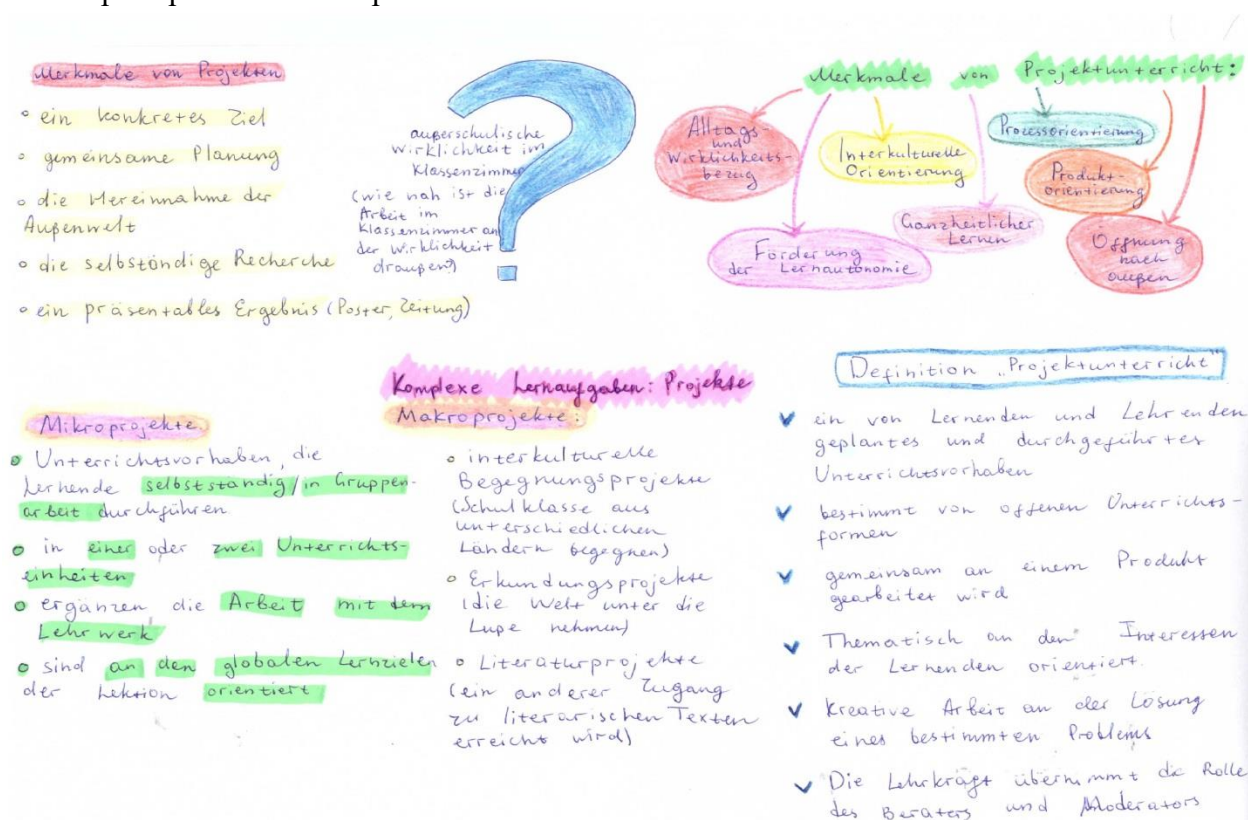 Merkmale von Projekten
ein konkretes Ziel
gemeinsame Planung
die Hereinnahme der
Außenwelt
die selbständige Recherche
ein präsentables Ergebnis (Poster, Zeitung)
außerschulische
Wirklichkeit im
Klassenzimmer
(wie nah ist die
Arbeit im
Klassenzimmer an
der Wirklichkeit
draußen?)
?
Merkmale von Projektunterricht:
Alltags
und
Wirklichkeits-
bezug
Interkulturelle
Orientierung
Prozessorientierung
Produkt-
orientierung
Förderung
der Lernautonomie
Ganzheitlicher
Lernen
Öffnung
nach
außen
Komplexe Lernaufgaben: Projekte
Mikroprojekte.
Unterrichtsvorhaben, die
Lernende selbstständig/in Gruppen-
arbeit durchführen
in einer oder zwei Unterrichts-
einheiten
ergänzen die Arbeit mit dem
Lehrwerk
sind an den globalen Lernzielen
der Lektion orientiert
Makroprojekte:
interkulturelle
Begegnungsprojekte
(Schulklasse aus
unterschiedlichen
Ländern begegnen)
Erkundungsprojekte
(die Welt unter die
Lupe nehmen)
Literaturprojekte
(ein anderer Zugang
zu literarischen Texten
erreicht wird)
Definition „Projektunterricht"
ein von Lernenden und Lehrenden
geplantes und durchgeführtes
Unterrichtsvorhaben
bestimmt von offenen Unterrichts-
formen
gemeinsam an einem Produkt
gearbeitet wird
Thematisch an den Interessen
der Lernenden orientiert.
kreative Arbeit an der Lösung
eines bestimmten Problems
Die Lehrkraft übernimmt die Rolle
des Beraters und Moderators